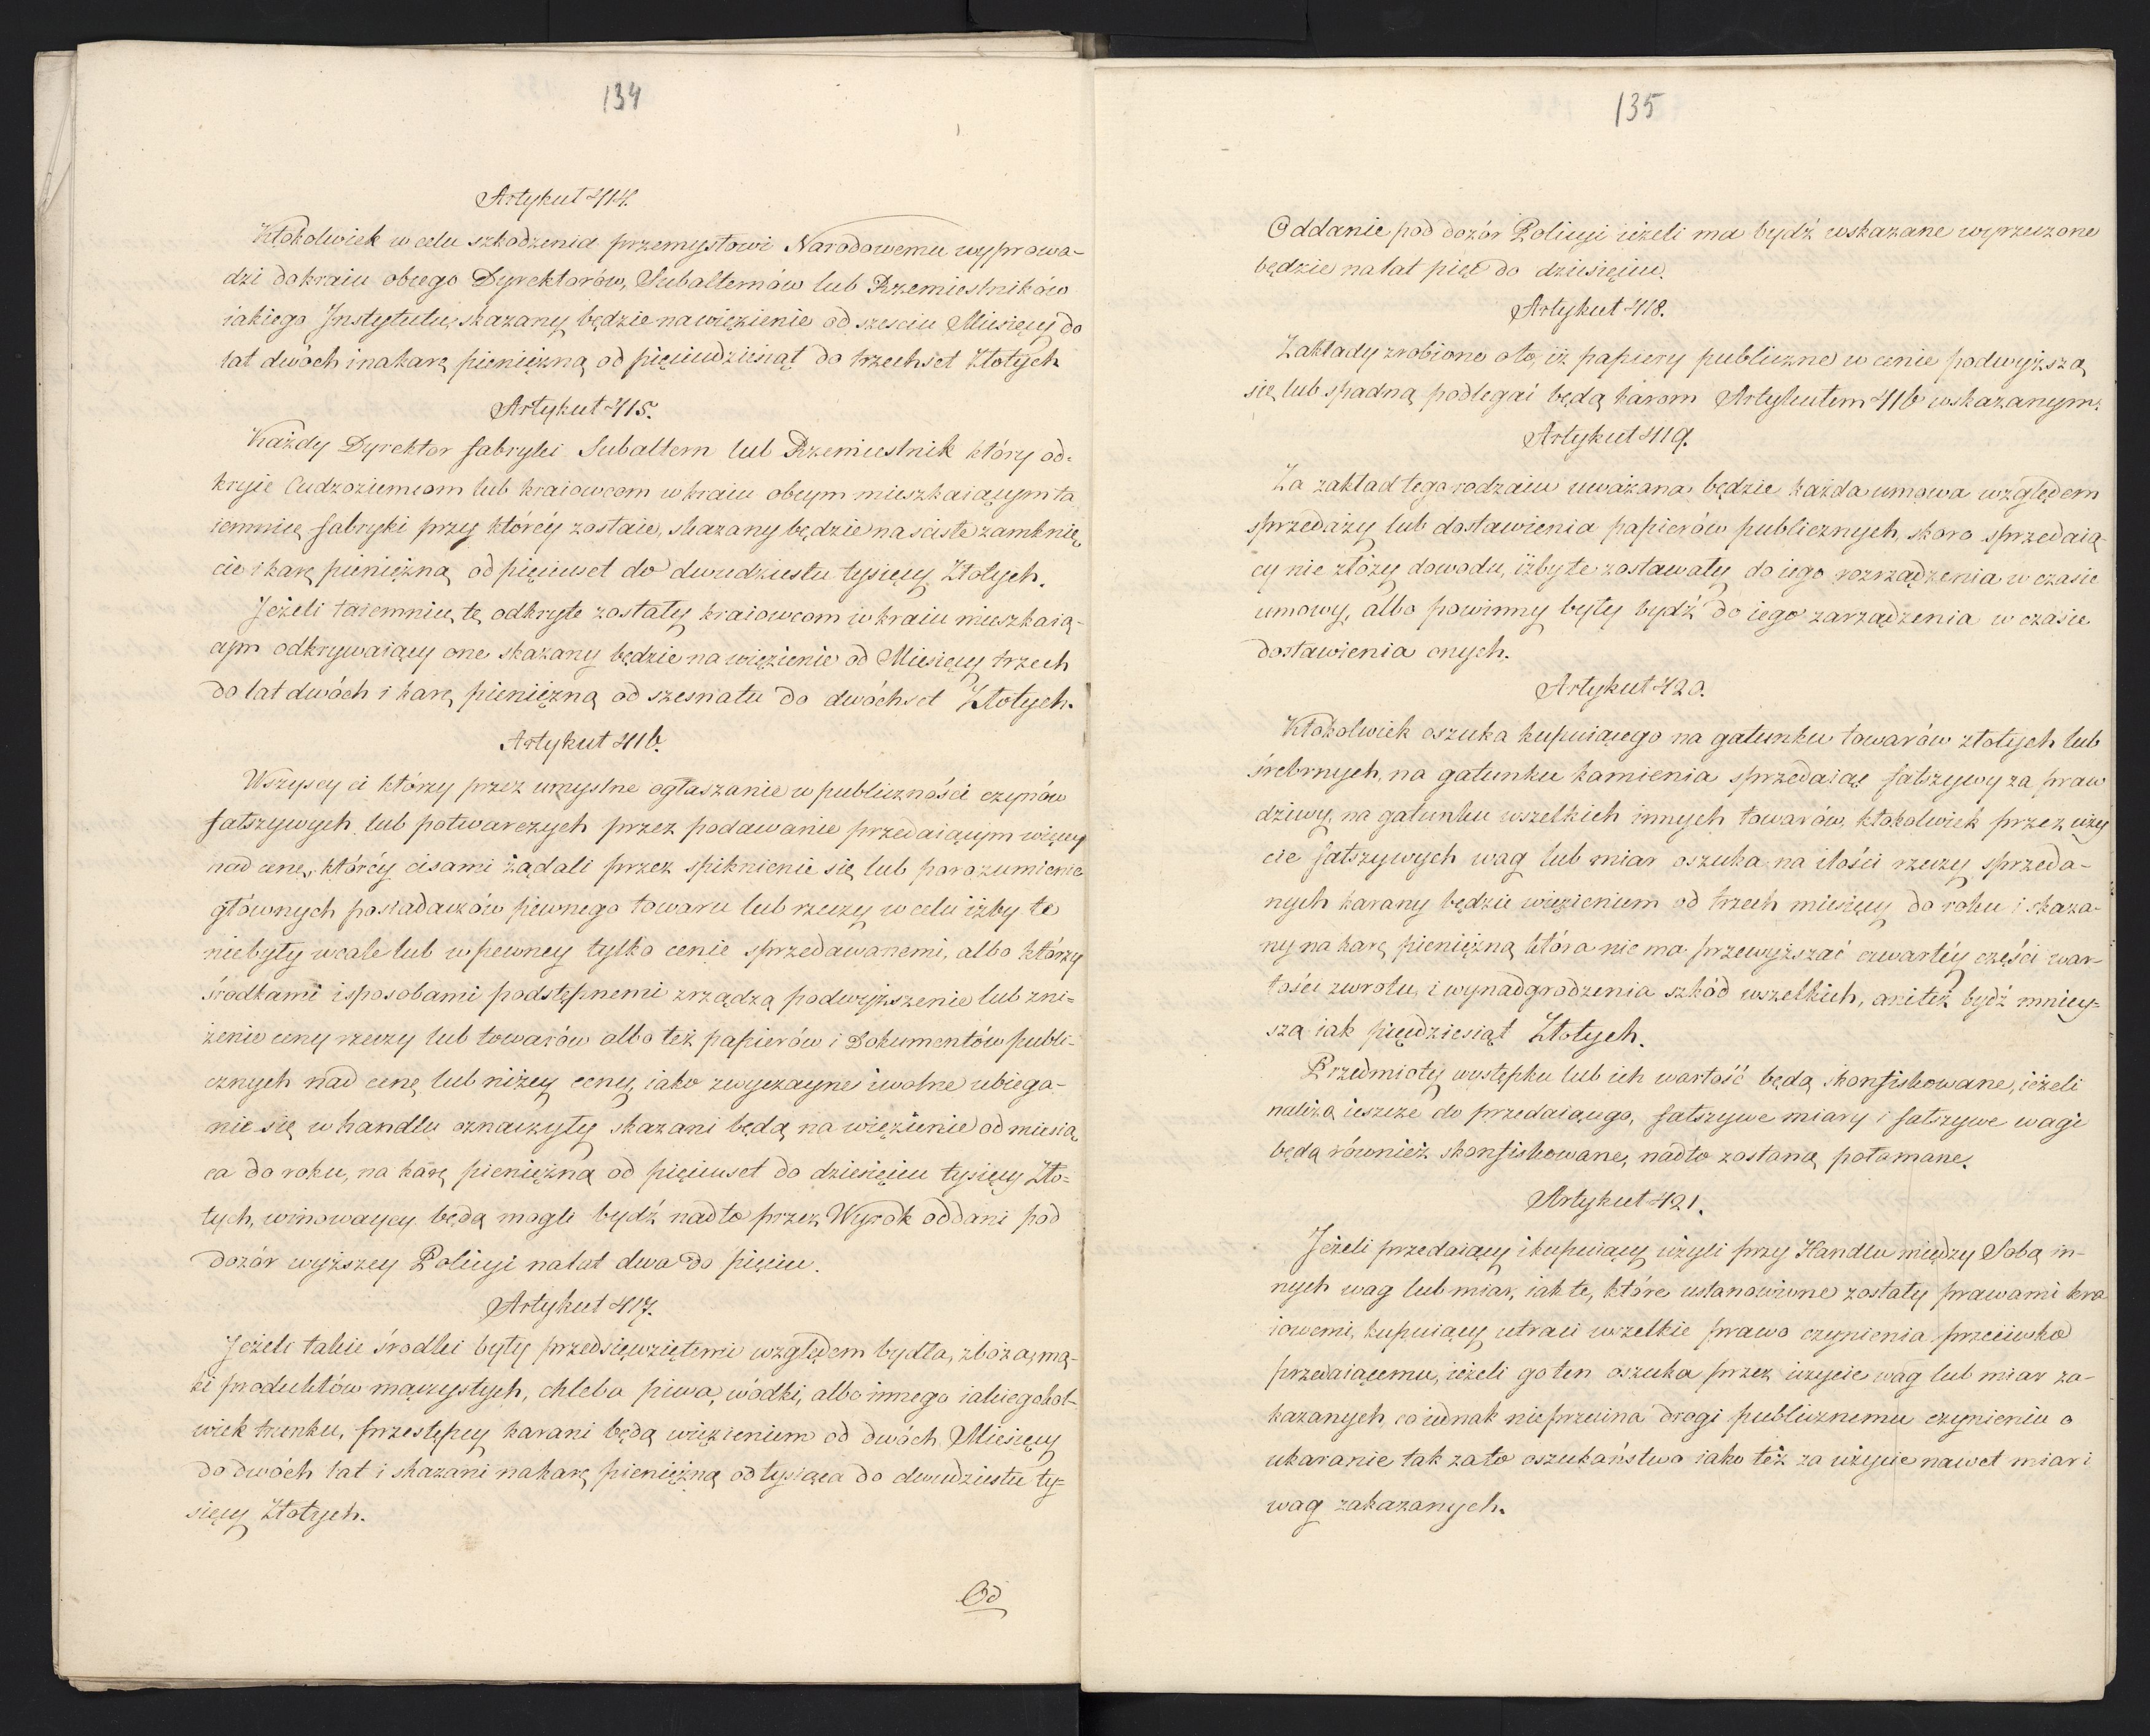 134
Artykuł 414.
Ktokolwiek w celu szkodzenia przemysłowi Narodowemu wyprowa-
dzi do kraiu obcego Dyrektorów, Subalternów lub Rzemieslników
iakiego Jnstytutu, skazany będzie na więzienie od szesciu Miesięcy do
lat dwóch i na karę pieniężną od pięciudziesiąt do trzechset Złotych
Artykuł 415.
Każdy Dyrektor fabryki Subaltern lub Rzemieslnik który od-
kryie Cudzoziemcom lub kraiowcom w kraiu obcym mieszkaiącym ta
iemnicę fabryki przy któréy zostaie, skazany będzie na scisłe zamknię
cie i karę pieniężną od pięciuset do dwudziestu tysięcy Złotych.
Jeżeli taiemnice te odkryte zostały kraiowcom w kraiu mieszkaią-
cym odkrywaiący one skazany będzie na więzienie od Miesięcy trzech
do lat dwóch i karę pieniężną od szesnastu do dwóchset Złotych.
Artykuł 416.
Wszyscy ci którzy przez umyslne ogłaszanie w publiczności czynów
fałszywych lub potwarczych przez podawanie przedaiącym więcey
nad cenę, któréy ci sami żądali przez spiknienie się lub porozumienie
głównych posiadaczów pewnego towaru lub rzeczy w celu iżby te
niebyły wcale lub w pewney tylko cenie sprzedawanemi, albo którzy
środkami i sposobami podstępnemi zrządzą podwyższenie lub zni-
żenie ceny rzeczy lub towarów albo też papierów i Dokumentów publi-
cznych nad cenę lub niżey ceny, iako zwyczayne i wolne ubiega-
nie się w handlu oznaczyły skazani będą na więzienie od miesią
ca do roku, na karę pieniężną od pięciuset do dziesięciu tysięcy Zło-
tych, winowaycy będą mogli bydź nadto przez Wyrok oddani pod
dozór wyższey Policyi na lat dwa do pięciu.
Artykuł 417.
Jeżeli takie środki były przedsięwziętemi względem bydła, zboża, mą-
ki produktów mączystych, chleba piwa, wódki, albo innego iakiegokol-
wiek trunku, przestępcy karani będą więzieniem od dwóch Miesięcy
do dwóch lat i skazani na karę pieniężną od tysiąca do dwudziestu ty-
sięcy Złotych.
Od
135
Oddanie pod dozór Policyi ieżeli ma bydź wskazane wyrzeczone
będzie na lat pięć do dziesięciu.
Artykuł 418.
Zakłady zrobione o to, iż papiery publiczne w cenie podwyższą
się, lub spadną podlegać będą karom Artykułem 416 wskazanym.
Artykuł 419.
Za zakład tego rodzaiu uważana będzie każda umowa względem
sprzedaży lub dostawienia papierów publicznych, skoro sprzedaią-
cy nie złoży dowodu, iżby te zostawały do iego rozrządzenia w czasie
umowy, albo powinny były bydź do iego zarządzenia w czasie
dostawienia onych.
Artykuł 420.
Ktokolwiek oszuka kupuiącego na gatunku towarów złotych lub
śrebrnych, na gatunku kamienia sprzedaiąc fałszywy za praw
dziwy, na gatunku wszelkich innych towarów, ktokolwiek przez uży
cie fałszywych wag lub miar oszuka na ilości rzeczy sprzeda-
nych karany będzie więzieniem od trzech miesięcy do roku i skaza-
ny na karę pieniężną która nie ma przewyższać czwartéy części war-
tości zwrotu, i wynadgrodzenia szkód wszelkich, ani też bydź mniey-
szą iak pięćdziesiąt Złotych.
Przedmioty występku lub ich wartość będą skonfiskowane, ieżeli
należą ieszcze do przedaiącego, fałszywe miary i fałszywe wagi
będą również skonfiskowane, nadto zostaną połamane.
Artykuł 421.
Jeżeli przedaiący i kupuiący użyli przy Handlu między Sobą in-
nych wag lub miar, iak te, które ustanowione zostały prawami kra
iowemi, kupuiący utraci wszelkie prawo czynienia przeciwko
przedaiącemu, ieżeli go ten oszuka przez użycie wag lub miar za-
kazanych, co iednak nieprzecina drogi publicznemu czynieniu o
ukaranie tak za to oszukaństwo iako też za użycie nawet miar i
wag zakazanych.